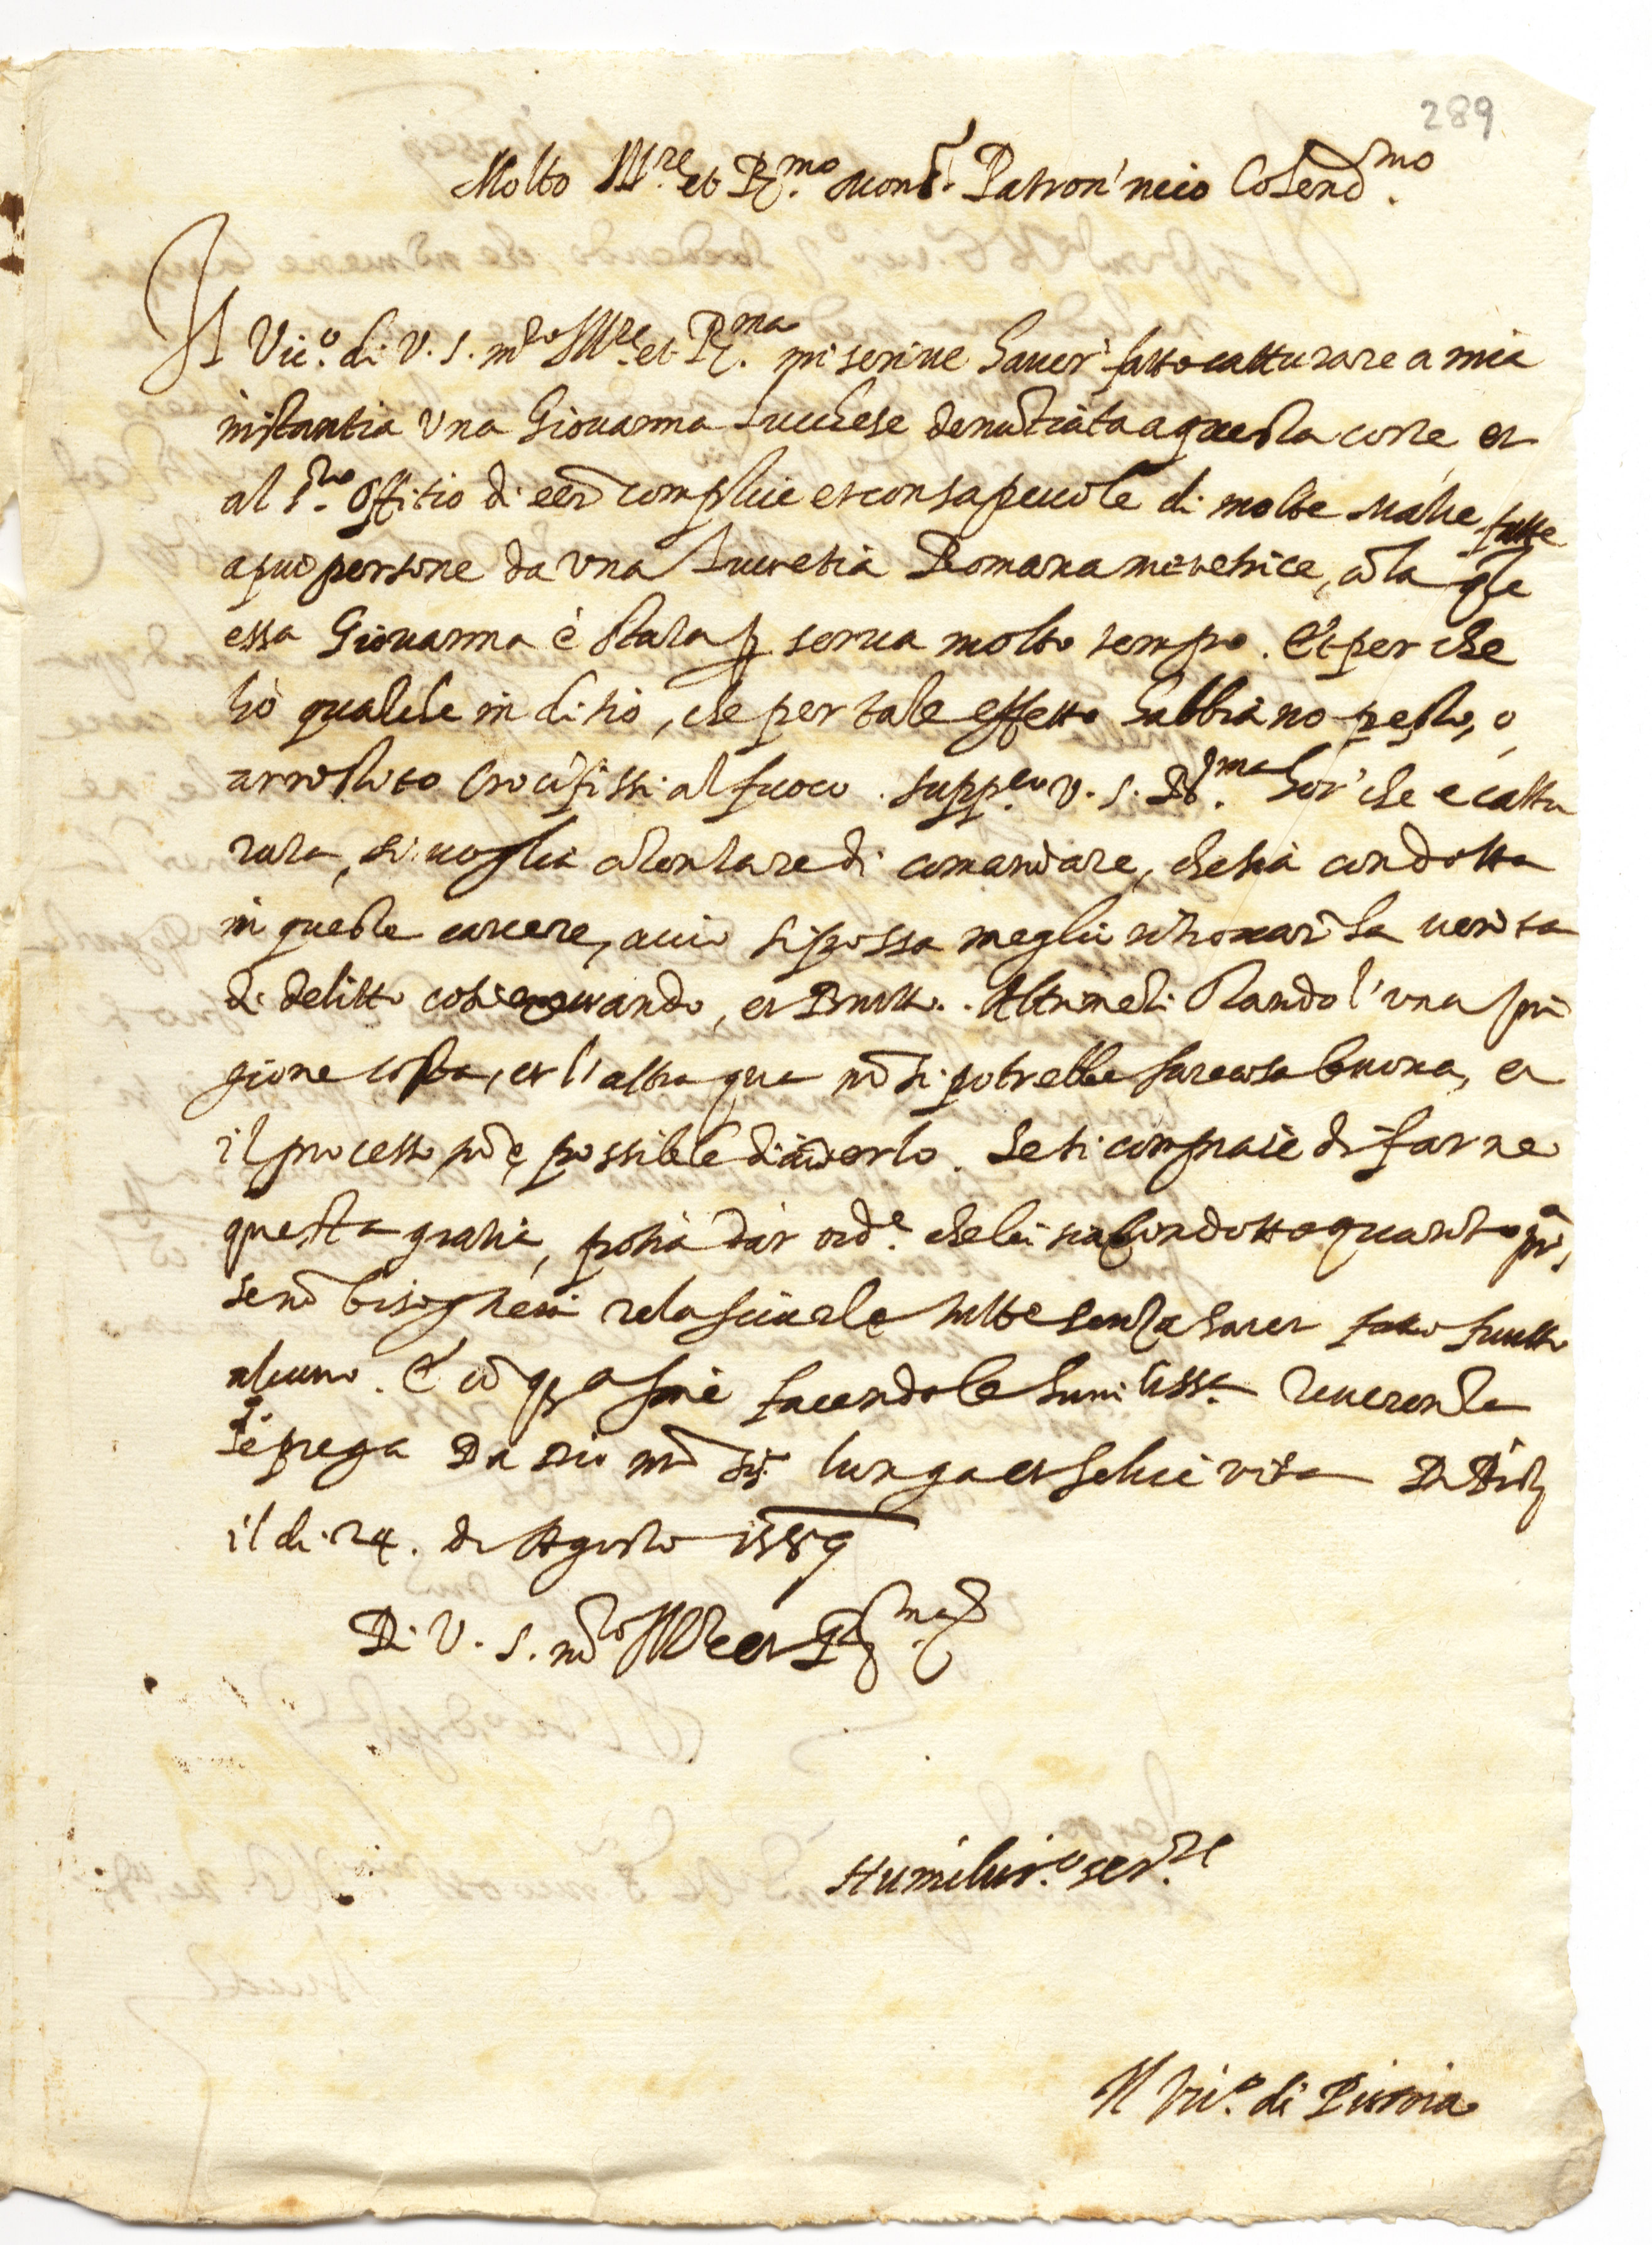 289
Molto Ill.re et R.mo Mons.r Patron' mio Colend.mo
Il Vic.o di V. S. m.to Ill.re et R.ma mi scrive haver' fatto catturare a mia
instantia una Giovanna Lucchese denūtiata a questa corte et
al S.to Offitio di eēr complice et consapevole di molte malie fatte
a piu persone da una Lucretia Romana meretrice, cō la q̄le
essa Giovanna è stata p serva molto tempo. Et per che
hò qualche inditio, che per tale effetto habbiano pesto, o
arrostito Crocifissi al fuoco. supp.co V. S. R.ma hor' che e cattu
rata, si voglia cōtentare di comandare, che sia condotta
in queste carcere, acciò si possa meglio ritrovar' la verità
di delitto cosi et brutto. Altrimēti stando l'una pri
gione costà, et l'altra qua nō si potrebbe far cosa buona, et
il processo nō è possibile. Se si compiace di farne
questa gratia, potrà dar ord.e che la sia condotta quanto p.a,
se nō bisogneria relasciarle tutte senza haver fatto frutto
alcuno. Et cō q.sto fine facendole humiliss.a reverenza
le prega da Dio lunga et felice vita Di
il di 24. di Agosto 1589
Di V. S. m.to Ill.re et R.ma
Humiliss.o ser.re
Il Vic.o di